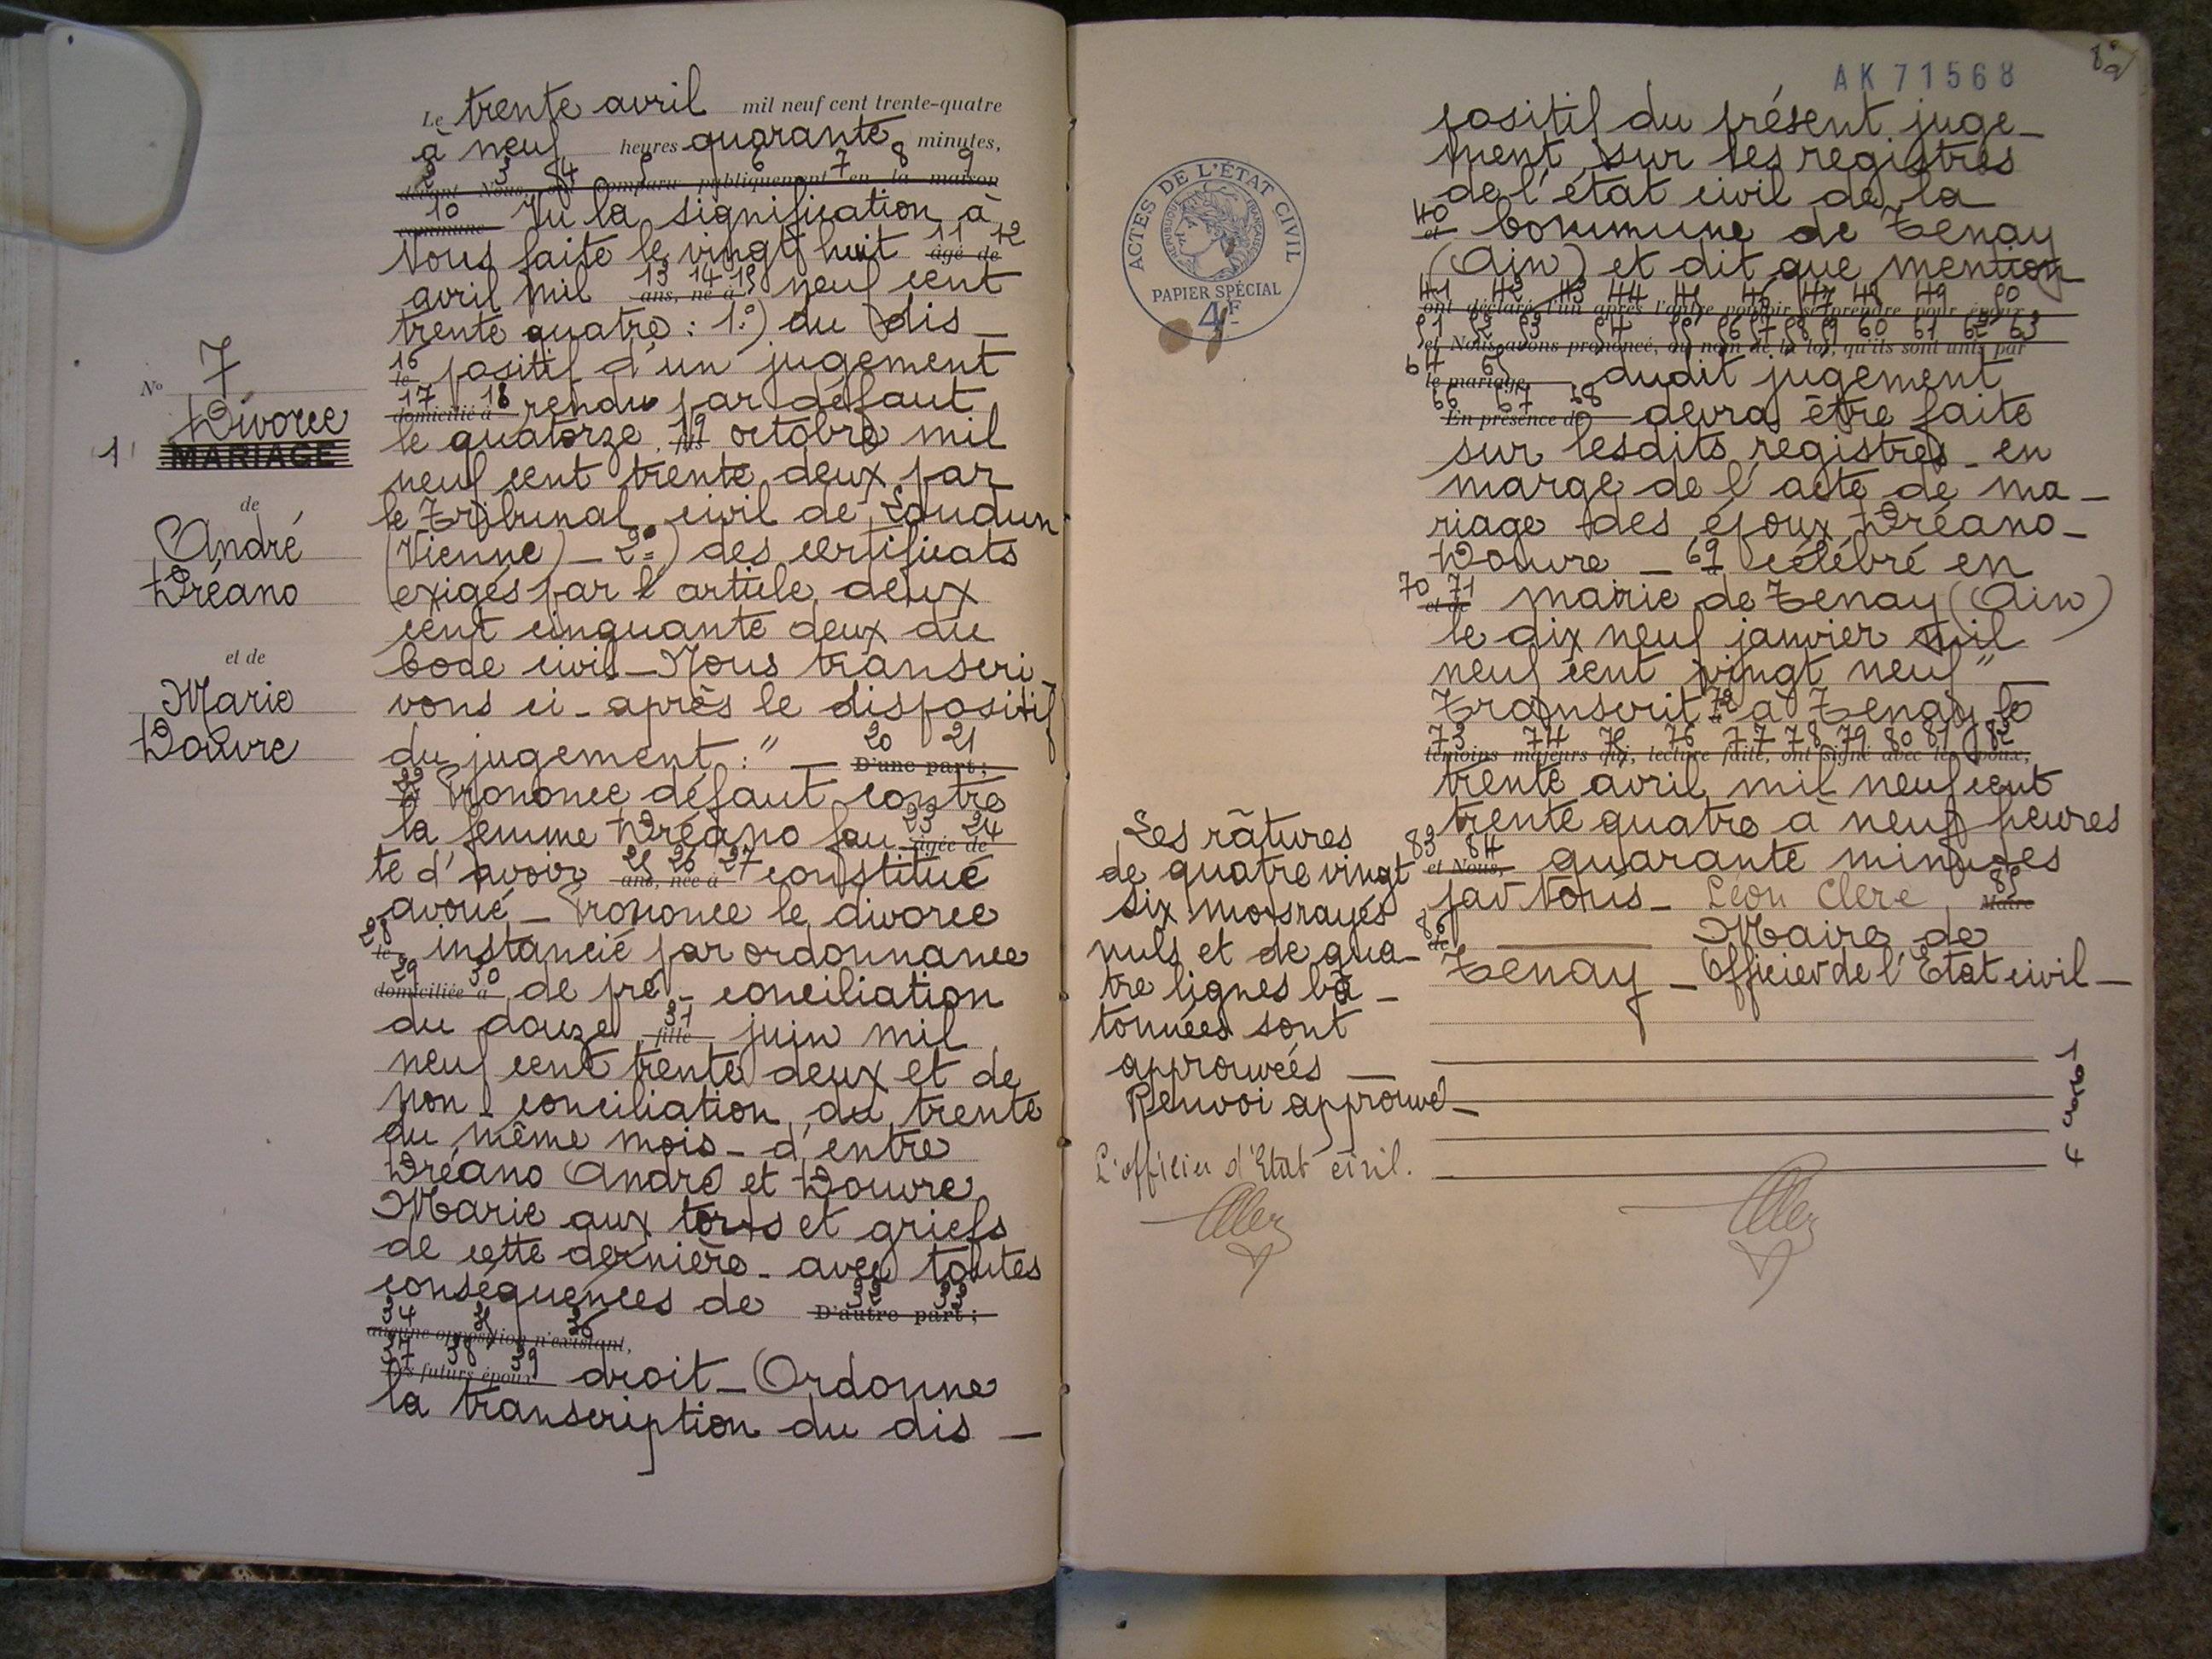 N° 7
Divorce
1 MARIAGE
de
André
Dréano
et de
Marie
Douvre
Le trente avril mil neuf cent trente-quatre
à neuf heures quarante minutes,
2 3 4 5 6 7 8 9
devant Nous, ont comparu publiquement en la maison
10
commune Vu la signification à
11 12
Nous faite le vingt huit âgé de
13 14 15
avril mil ans, né à neuf cent
trente quatre : 1°) du dis_
16
le positif d'un jugement
17 18
domicilié à rendu par défaut
19
le quatorze fils octobre mil
neuf cent trente deux par
le Tribunal civil de Loudun
(Vienne) _ 2°) des certificats
exigés par l'article deux
cent cinquante deux du
Code civil _ Nous transcri_
vons ci-après le dispositif
20 21
du jugement : " _ D'une part ;
22
Prononce défaut contre
23 24
la femme Dréano fau âgée de
25 26 27
te d'avoir ans, née à constitué
avoué _ Prononce le divorce
28
le instancié par ordonnance
29 30
domiciliée à de pré-conciliation
31
du douze fille juin mil
neuf cent trente deux et de
non-conciliation du trente
du même mois _ d'entre
Dréano André et Douvre
Marie aux torts et griefs
de cette dernière _ avec toutes
32 33
conséquences de D'autre part ;
34 35 36
aucune opposition n'existant,
37 38 39
Les futurs époux droit _ Ordonne
la transcription du dis_
AK 71568
8
ACTES DE L'ÉTAT CIVIL
RÉPUBLIQUE FRANÇAISE
PAPIER SPÉCIAL
4F
positif du présent juge_
ment sur les registres
de l'état civil de la
40
et Commune de Tenay
(Ain) et dit que mention
41 42 43 44 45 46 47 48 49 50
ont déclaré l'un après l'autre vouloir se prendre pour époux
51 52 53 54 55 56 57 58 59 60 61 62 63
et Nous avons prononcé, au nom de la loi, qu'ils sont unis par
64 65
le mariage. dudit jugement
66 67 68
En présence de devra être faite
sur lesdits registres _ en
marge de l'acte de ma_
riage des époux Dréano_
Douvre _ 69 célébré en
70 71
et de mairie de Tenay (Ain)
le dix neuf janvier mil
neuf cent vingt neuf" _
Transcrit 72 à Tenay le
73 74 75 76 77 78 79 80 81 82
témoins majeurs qui, lecture faite, ont signé avec les époux,
trente avril mil neuf cent
trente quatre à neuf heures
83 84
et Nous, quarante minutes
85
par Nous _ Léon Clerc, Maire
86
de Maire de
Tenay _ Officier de l'Etat civil _
Les râtures
de quatre vingt
six mots rayés
nuls et de qua_
tre lignes bâ_
tonnées sont
approuvées _
Renvoi approuvé _
L'officier d'Etat civil.